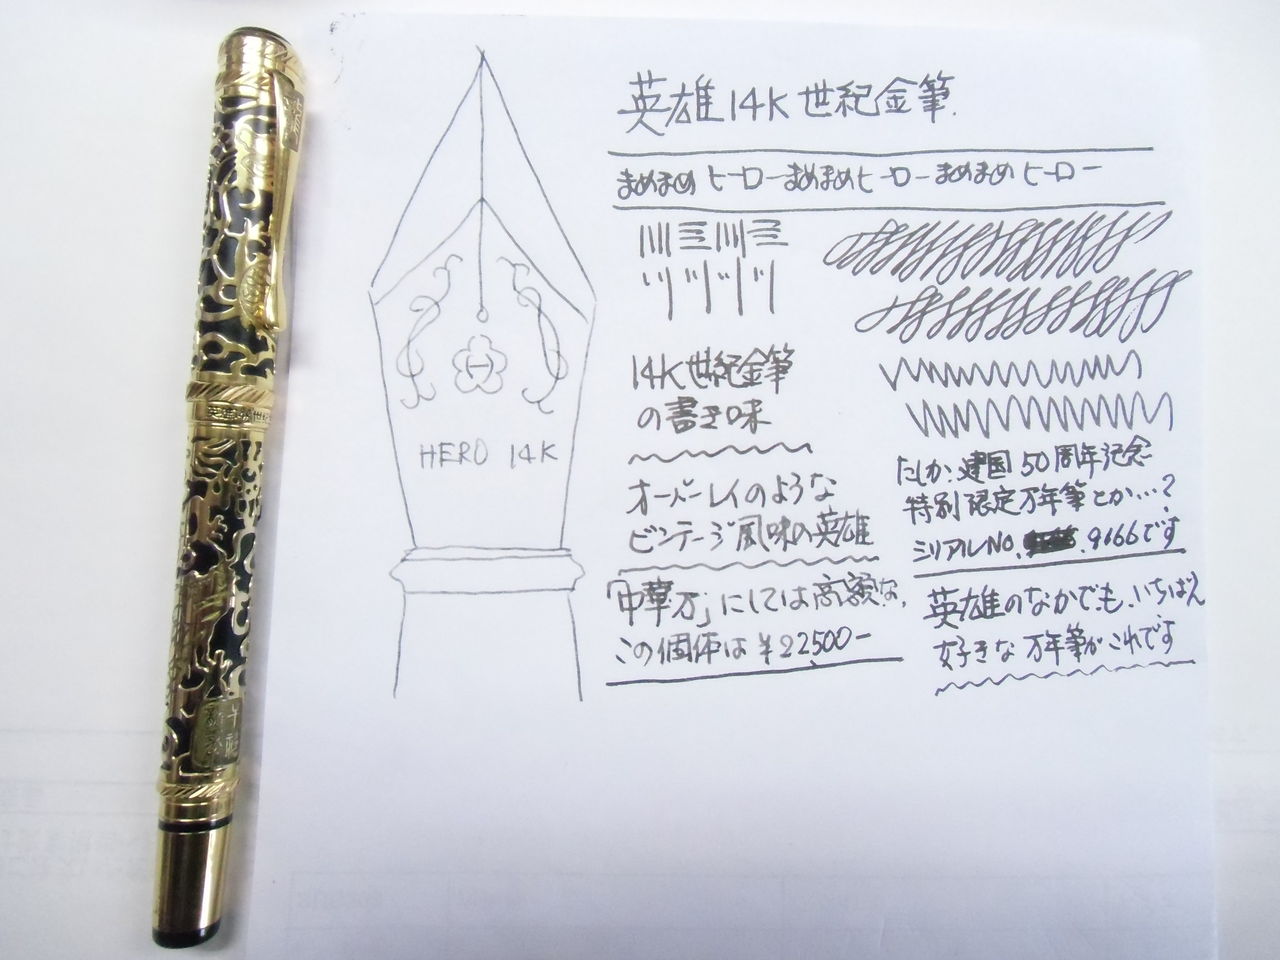 英雄14K世紀金筆.
まめまめヒーローまめまめヒーローまめまめヒーロー
14K世紀金筆
の書き味
オーバーレイのような
ビンテージ風味の英雄
「中華万」にしては高額な、
この個体は¥22500ー
たしか、建国50周年記念
特別限定万年筆とか…?
シリアルNo. .9666です
英雄のなかでも、いちばん
好きな万年筆がこれです
HERO 14K